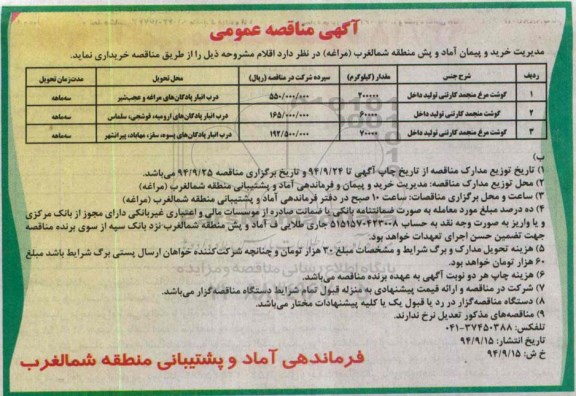 آگهی مناقصه عمومی
مدیریت خرید و پیمان آماد و پش منطقه شمالغرب (مراغه) در نظر دارد اقلام مشروحه ذیل را از طریق مناقصه خریداری نماید.
ردیف شرح جنس مقدار (کیلوگرم) سپرده شرکت در مناقصه (ریال) محل تحویل مدت زمان تحویل
۱ گوشت مرغ منجمد کارتنی تولید داخل ۲۰۰۰۰۰ ۵۵۰/۰۰۰/۰۰۰ درب انبار پادگان‌های مراغه و عجب‌شیر سه‌ماهه
۲ گوشت مرغ منجمد کارتنی تولید داخل ۶۰۰۰۰ ۱۶۵/۰۰۰/۰۰۰ درب انبار پادگان‌های ارومیه، قوشچی، سلماس سه‌ماهه
۳ گوشت مرغ منجمد کارتنی تولید داخل ۷۰۰۰۰ ۱۹۲/۵۰۰/۰۰۰ درب انبار پادگان‌های پسوه، سقز، مهاباد، پیرانشهر سه‌ماهه
ب)
۱) تاریخ توزیع مدارک مناقصه از تاریخ چاپ آگهی تا ۹۴/۹/۲۴ و تاریخ برگزاری مناقصه ۹۴/۹/۲۵ می‌باشد.
۲) محل توزیع مدارک مناقصه: مدیریت خرید و پیمان و فرماندهی آماد و پشتیبانی منطقه شمالغرب (مراغه)
۳) ساعت و محل برگزاری مناقصات: ساعت ۱۰ صبح در دفتر فرماندهی آماد و پشتیبانی منطقه شمالغرب (مراغه)
۴) ده درصد مبلغ مورد معامله به صورت ضمانتنامه بانکی یا ضمانت صادره از موسسات مالی و اعتباری غیربانکی دارای مجوز از بانک مرکزی
و یا واریز به صورت وجه نقد به حساب ۵۱۵۱۵۷۰۴۲۳۰۰۸ جاری طلایی ف آماد و پش منطقه شمالغرب نزد بانک سپه از سوی برنده مناقصه
جهت تضمین حسن اجرای تعهدات خواهد بود.
۵) هزینه تحویل مدارک و برگ شرایط و مشخصات مبلغ ۳۰ هزار تومان و چنانچه شرکت‌کننده خواهان ارسال پستی برگ شرایط باشد مبلغ
۶۰ هزار تومان خواهد بود.
۶) هزینه چاپ هر دو نوبت آگهی به عهده برنده مناقصه می‌باشد.
۷) شرکت در مناقصه و ارائه قیمت پیشنهادی به منزله قبول تمام شرایط دستگاه مناقصه‌گزار می‌باشد.
۸) دستگاه مناقصه‌گزار در رد یا قبول یک یا کلیه پیشنهادات مختار می‌باشد.
۹) مناقصه‌های مذکور تعدیل نرخ ندارند.
تلفکس: ۳۷۴۵۰۳۸۸-۰۴۱
تاریخ انتشار: ۹۴/۹/۱۵
خ ش: ۹۴/۹/۱۵
فرماندهی آماد و پشتیبانی منطقه شمالغرب